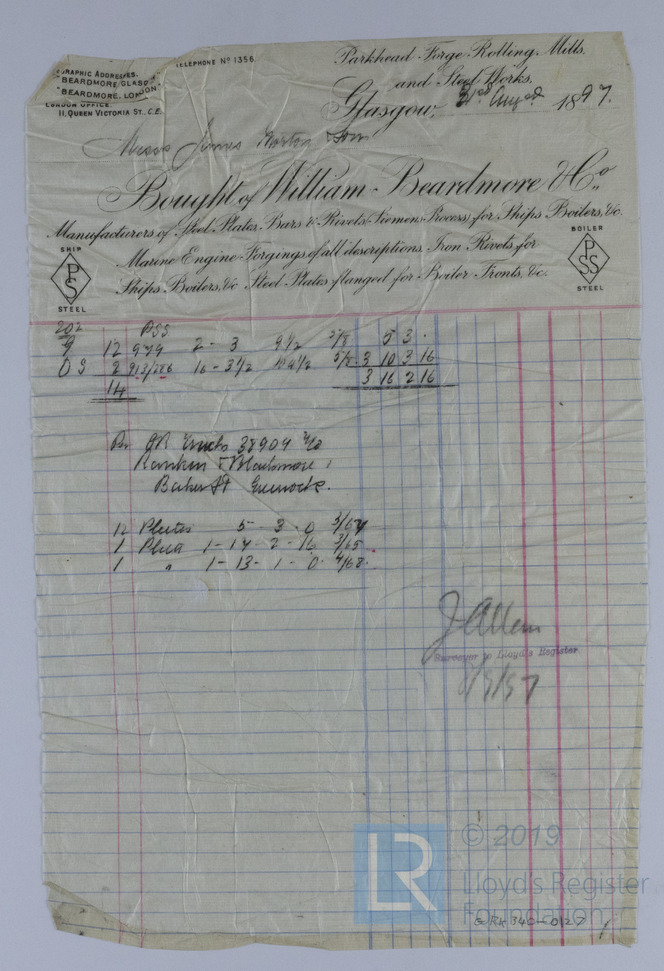 GRAPHIC ADDRESSES.
"BEARDMORE, GLASGOW"
"BEARDMORE, LONDON"
LONDON OFFICE
11, QUEEN VICTORIA ST., E.C.
TELEPHONE No 1356
Parkhead Forge Rolling Mills,
and Steel Works,
Glasgow, 31st Augst 1897.
Messrs James Horton & Son
Bought of William Beardmore & Co.,
Manufacturers of Steel Plates, Bars & Rivets (Siemens Process) for Ships, Boilers, &c.
Marine Engine Forgings of all descriptions. Iron Rivets for
Ships, Boilers, &c Steel Plates flanged for Boiler Fronts, &c.
SHIP
PS
S
STEEL
BOILER
P
SS
STEEL
202 PSS
9 12 979 2 - 3 9 1/2 3/8 5 3 .
O S 2 16 - 3 1/2 5/8 3 10 3 16
14 3 16 2 16
Per GR Trucks 38904 %
Rankin & Blackmore,
Baker St Greenock.
12 Plates 5 - 3 . 0
1 Plate 1 - 17 - 2 - 16 3/65
1 " 1 - 13 - 1 - 0 4/68.
J Allan
Surveyor to Lloyd's Register
LR
© 2019
Lloyd's Register
Foundation